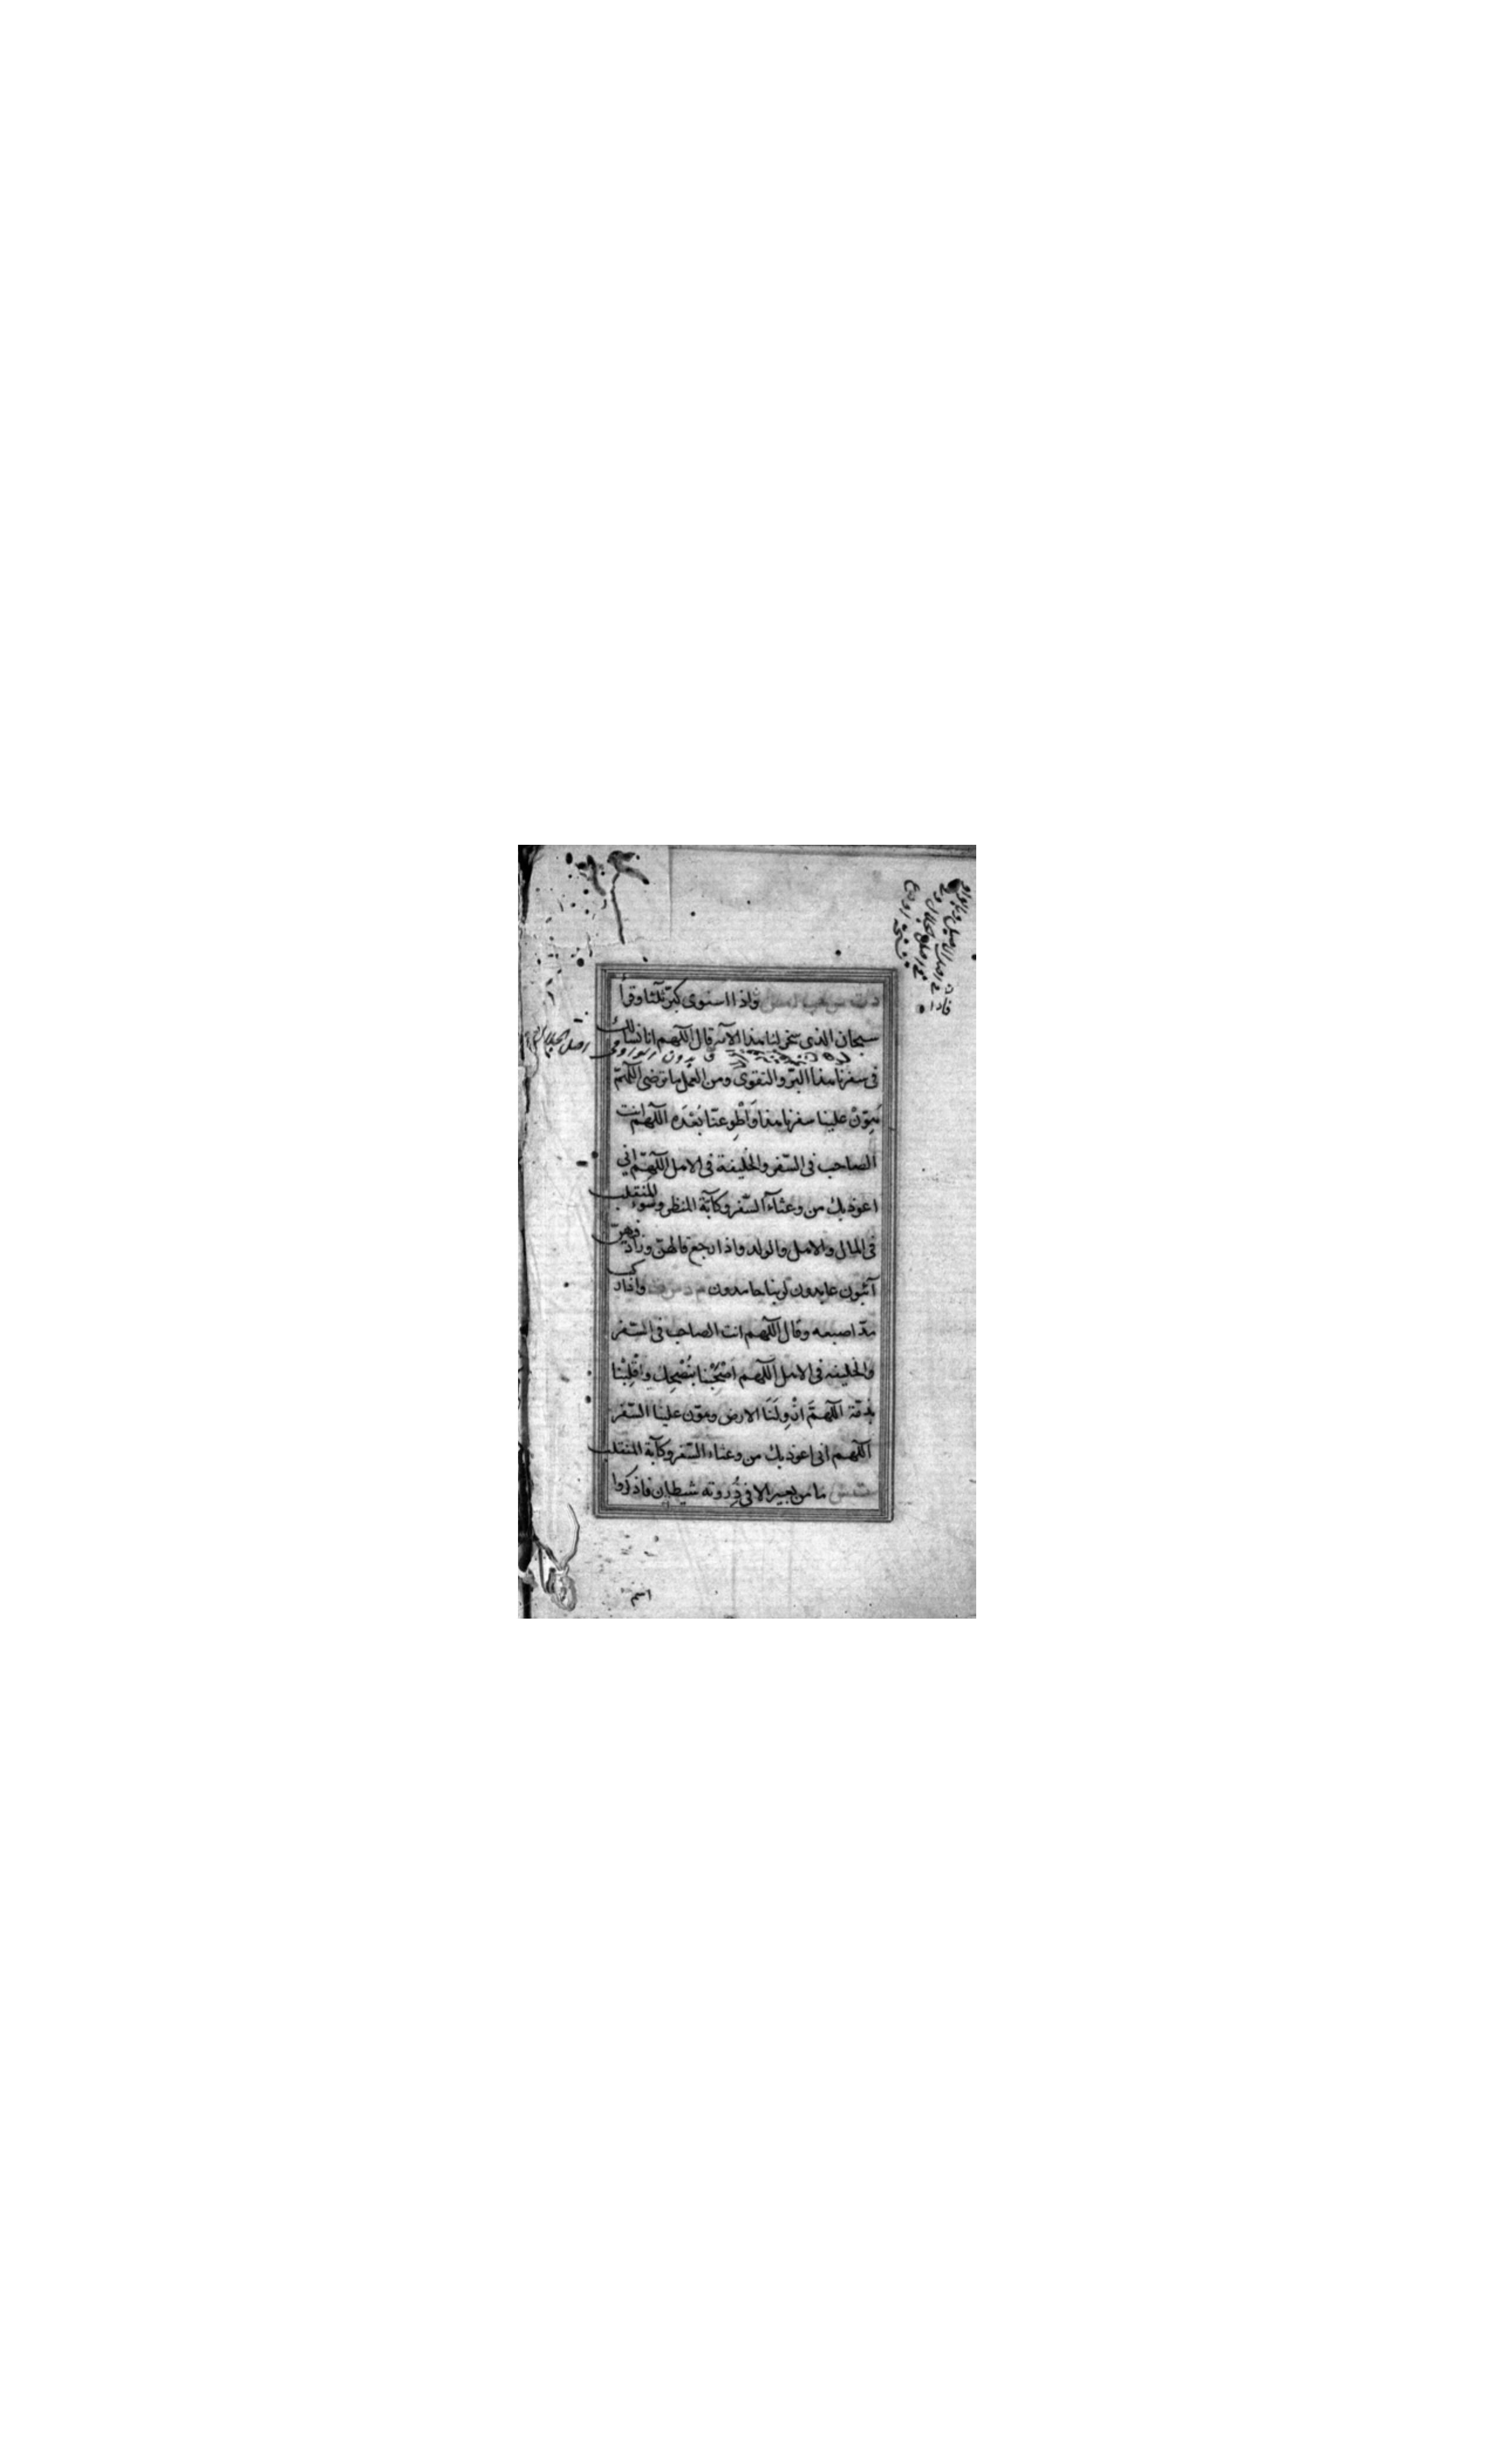 واذا استوى كبّر ثلثا وقرأ
سبحان الذى سخر لنا هذا الآية قال اللهم انا نسالك
فى سفرنا هذا البرّ والتقوى ومن العمل ما ترضى اللهمّ
هَوِّنْ علينا سفرنا هذا وَاطْوِ عنّا بُعْدَه اللهم انت
الصاحب فى السّفر والخليفة فى الاهل اللهمّ انى
اعوذ بك من وعثاء السّفر وكآبة المنظر وسوء المنقلب
فى المال والاهل والولد واذا رجع قالهنّ وزاد فيهنّ
آئبون عابدون لربنا حامدون م د س ت واذا ركب
مدّ اصبعه وقال اللهم انت الصاحب فى السّفر
والخليفه فى الاهل اللهم اصْحَبْنا بنُصْحِك واقْلِبْنا
بذمّة اللهمّ ازْوِ لَنَا الارض وهوّن علينا السّفر
اللهم انى اعوذ بك من وعثاء السّفر وكآبة المنقلب
ت س ما من بعير الا فى ذُِروته شيطان فاذكروا
اسم